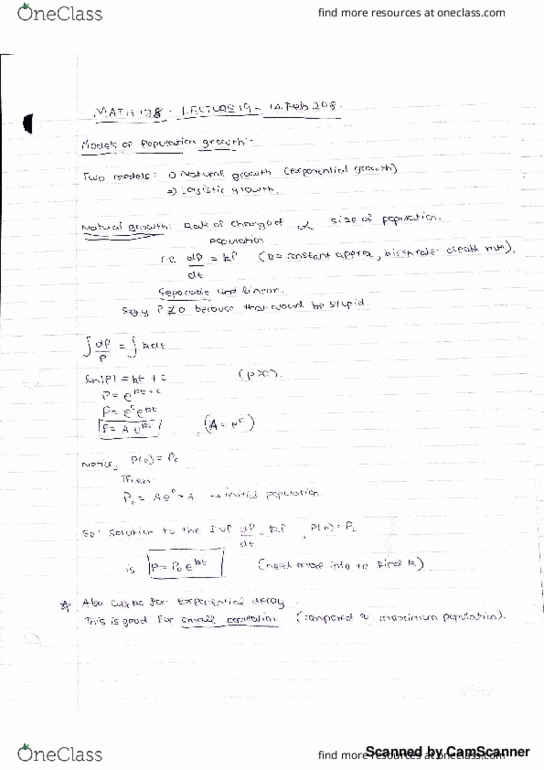 OneClass
find more resources at oneclass.com
MATH 128 - LECTURE 19 - 14 Feb 2018.
Models of Population growth -
Two models: 1) Natural growth (exponential growth)
2) Logistic growth.
Natural growth: Rate of change of ∝ size of population.
population
i.e. dP/dt = kP (k = constant approx, birth rate - death rate).
Separable and linear.
Say P ≠ 0 because that would be stupid.
∫ dP/P = ∫ k dt
ln|P| = kt + c (P>0).
P = e^(kt+c)
P = e^c e^kt
P = A e^kt (A = e^c)
Notice, P(0) = P₀
Then
P₀ = A e⁰ = A → initial population
So: Solution to the IVP dP/dt = kP, P(0) = P₀
is P = P₀ e^kt (need more info to find k)
* Also same for exponential decay.
This is good for small population (compared to maximum population).
OneClass
find more resources at oneclass.com
Scanned by CamScanner